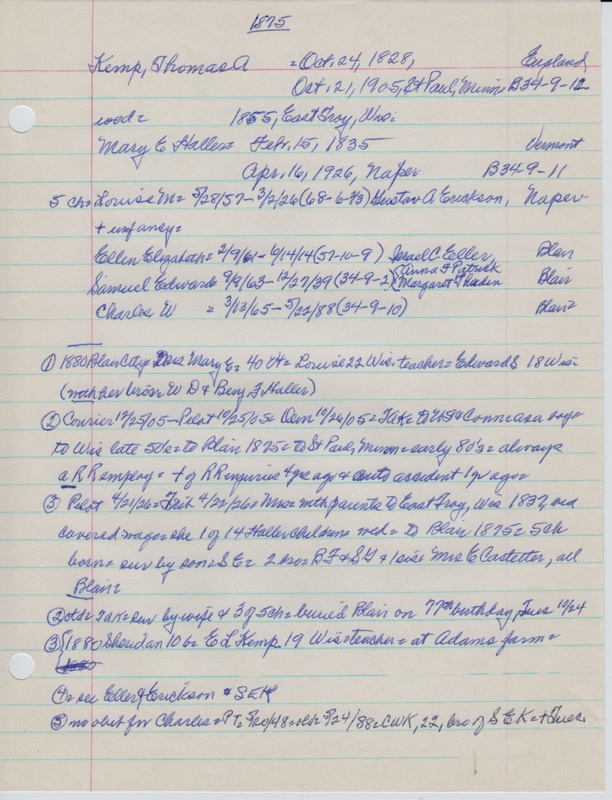 1875
Kemp, Thomas A = Oct. 24, 1828, England
Oct. 21, 1905, St Paul, Minn. B34-9-12
wed = 1855, East Troy, Wis.
Mary E Haller = Febr. 15, 1835 Vermont
Apr. 16, 1926, Naper B34-9-11
5 ch = Louise M = 5/28/57 - 3/2/26 (68- Gustav A Erickson, Naper
+ infancy =
Ellen Elizabeth = 2/9/61 - 6/14/14 (57-10-9) Israel C Eller, Blair
Samuel Edward = 9/9/63 - 12/27/39 (34-9-2) {Anna F Patrick
Margaret Thaden Blair
Charles W = 3/13/65 - 5/22/88 (34-9-10) Blair =
① 1880 Blair City = Mary E = 40 Vt = Louise 22 Wis. teacher = Edward S 18 Wis =
(with her bros = W D & Benj. F Haller)
② Courier 10/25/05 - Pilot 10/25/05 = Dem 10/26/05 = TAK = to US & Conn as a
to Wis late 50's = to Blair 1875 = to St Paul, Minn = early 80's = always
a RR employ = + of RR injuries 4 yrs ago & auto accident 1 yr ago =
③ Pilot 4/21/26 = Trib 4/22/26 = Mrs = with parents to East Troy, Wis 1837, via
covered wagon = she 1 of 14 Haller children = wed = to Blair 1875 = 5 ch
born = sur by son = S E = 2 bro = B F & & 1 sis = Mrs E Castetter, all
Blair =
② = TAK = sur by wife & 3 of 5 ch = buried Blair on 77th birthday, Tues 10/24
③ {1880 Sheridan 106 = E L Kemp 19 Wis = teacher = at Adams farm =
④ = see Eller & Erickson & S E K
⑤ no obit for Charles = PT = = CWK, 22, bro of S E K = + Tues.